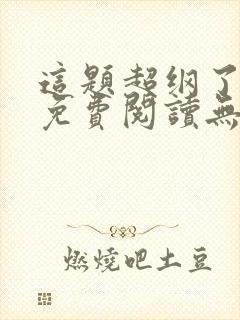 這題超纲了
免費閱讀無
燃燒吧土豆